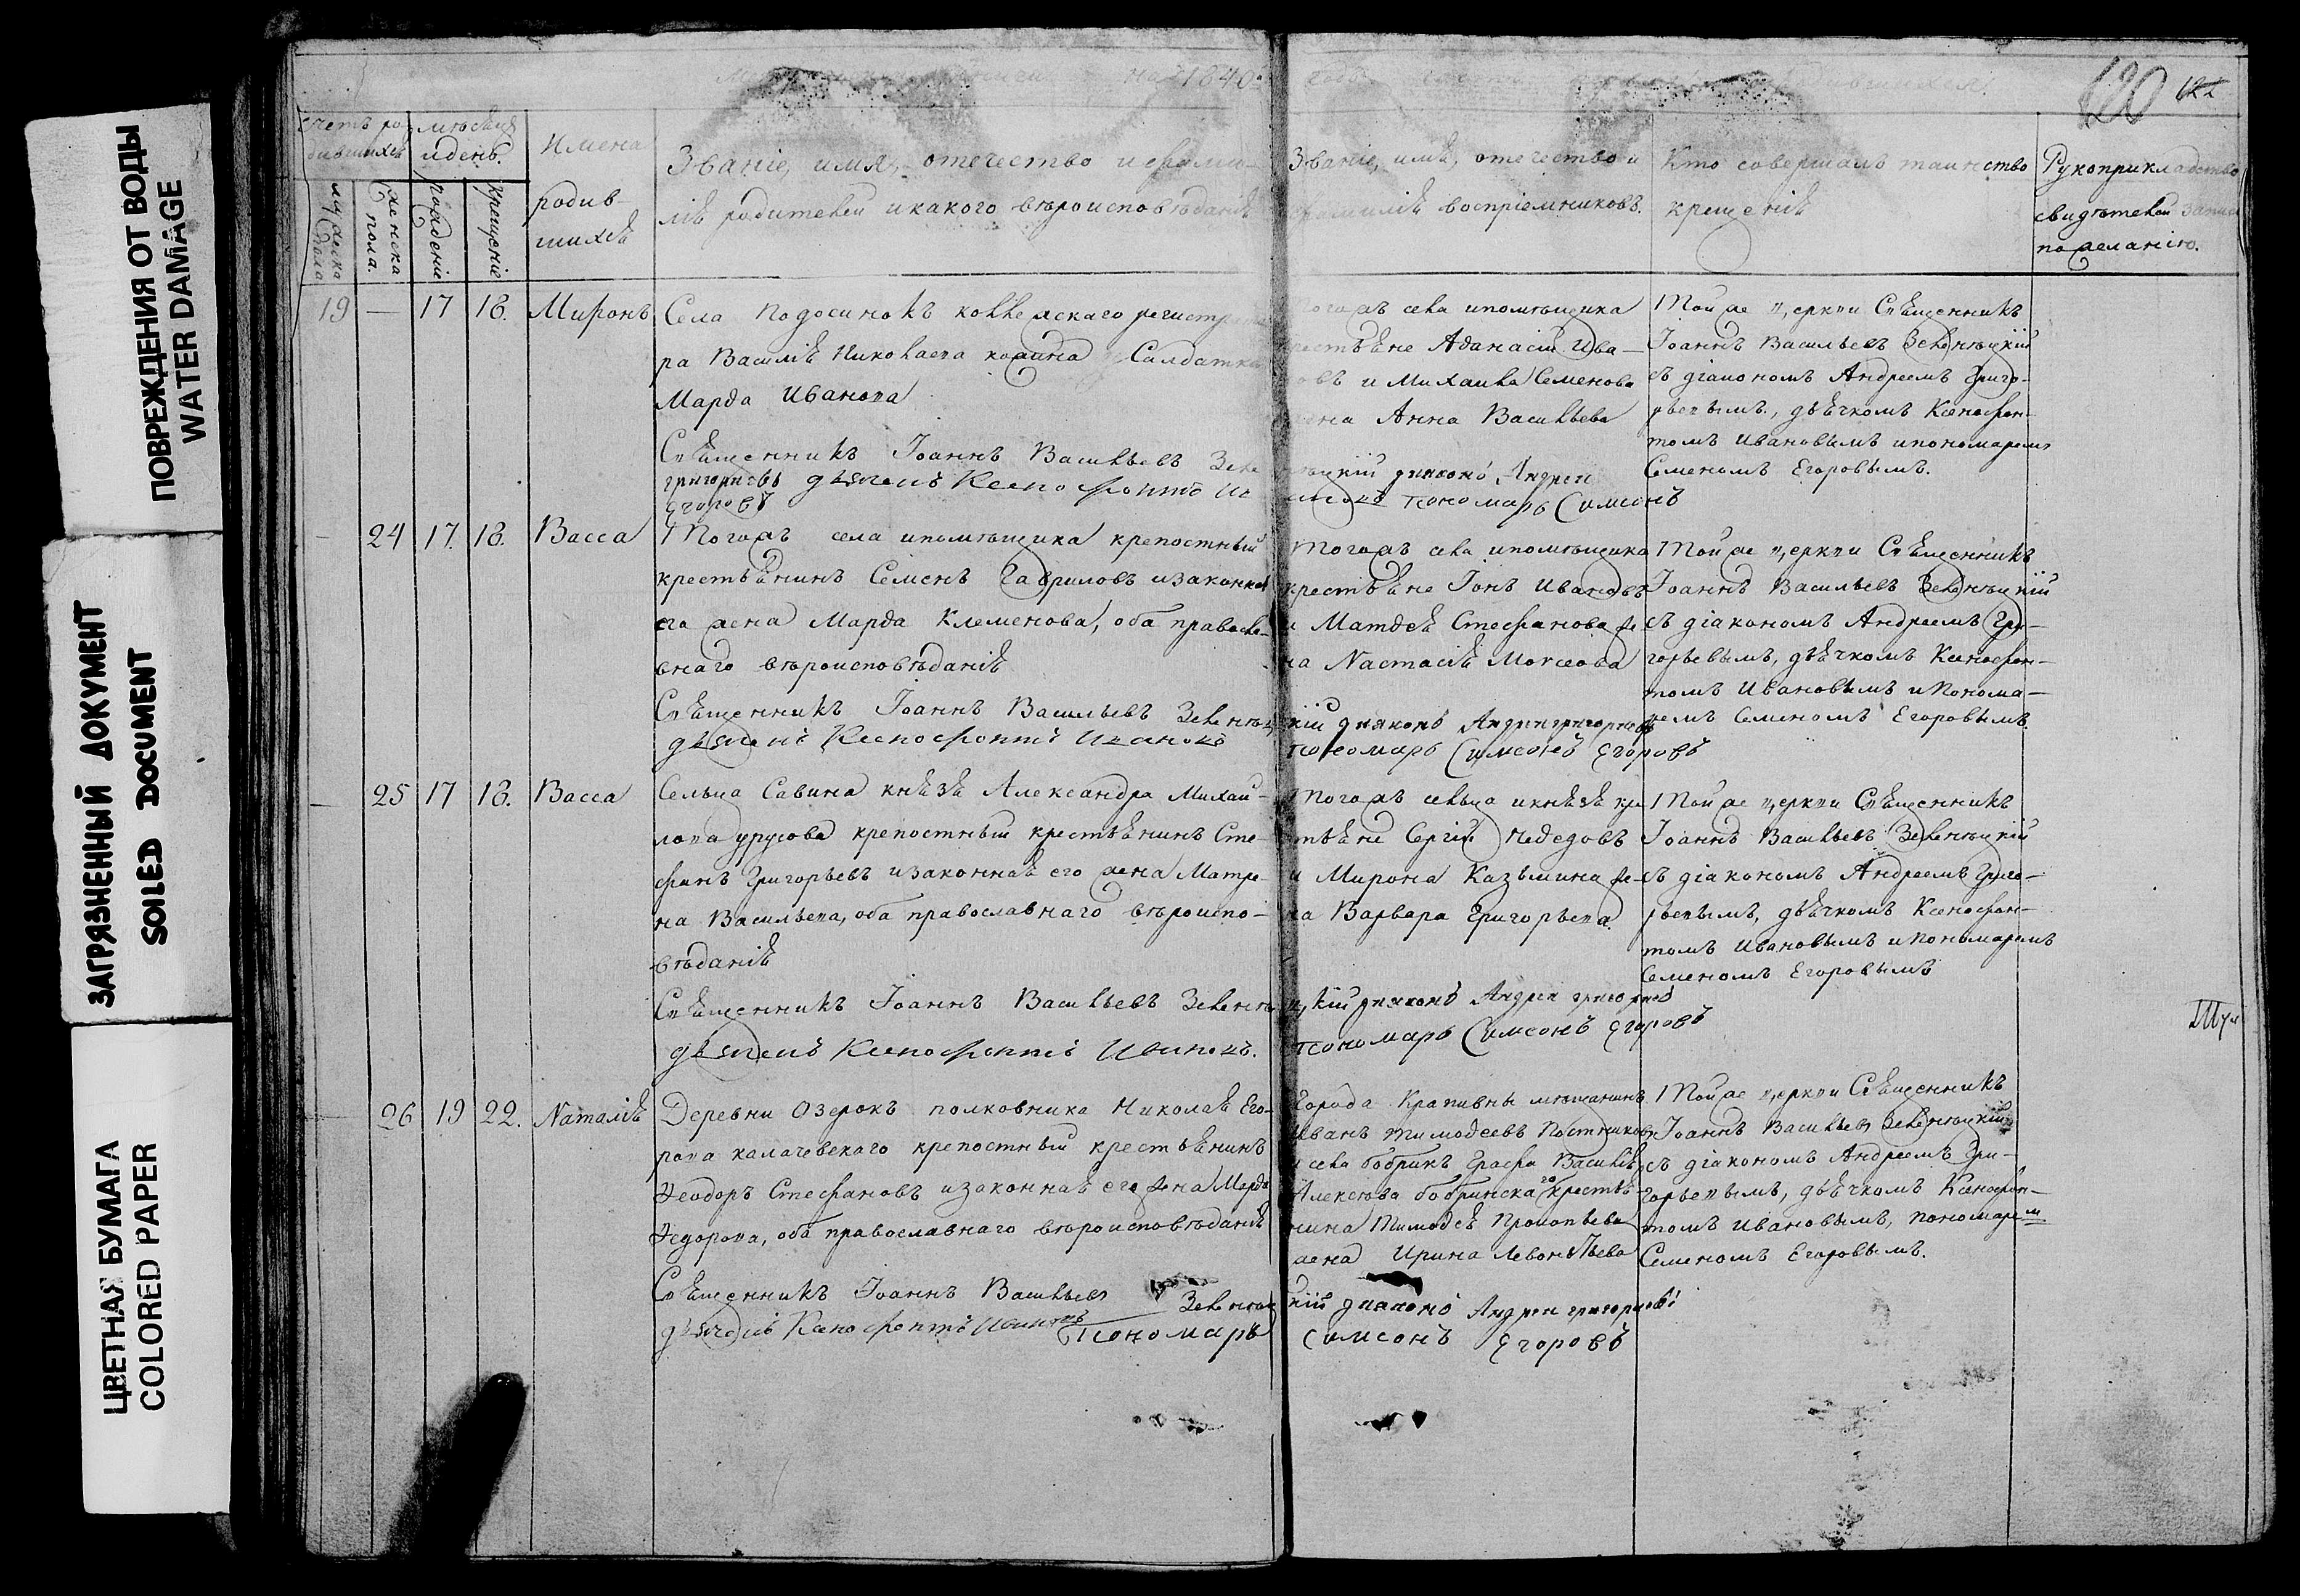 ПОВРЕЖДЕНИЯ ОТ ВОДЫ
WATER DAMAGE
ЗАГРЯЗНЕННЫЙ ДОКУМЕНТ
SOILED DOCUMENT
ЦВЕТНАЯ БУМАГА
COLORED PAPER
на 1840
120
Имена
родив-
шихся
мѣсяцъ
и день.
рожденіе
крещеніе
женска
пола.
Званіе, имя, отечество и фами-
лія родителей и какого вѣроисповѣданія
Званіе, имя, отечество и
фамилія воспріемниковъ.
Кто совершалъ таинство
крещенія
Рукоприкладство
свидѣтелей записи
по желанію.
19 — 17 18. Миронъ
Села Подосинокъ коллежскаго регистрато
ра Василія Николаева Салдатка
Марѳа Иванова
Священникъ Іоаннъ Васильевъ Зеле
григорьевъ дьячекъ Ксенофонтъ Ив
Егоровъ
Тогожъ села и помѣщика
крестьяне Аѳанасій Ива-
новъ и Михаила Семенова
жена Анна Васильева
нѣцкій диаконъ Андрей
пономарь Симеонъ
Тойже церкви Священникъ
Іоаннъ Васильевъ Зеленѣцкій
съ діакономъ Андреемъ Григо-
рьевымъ, дьячкомъ Ксенофон-
томъ Ивановымъ и пономаремъ
Семеномъ Егоровымъ.
— 24 17. 18. Васса
Тогожъ села и помѣщика крепостный
крестьянинъ Семенъ Гавриловъ и законная
его жена Марѳа Клеменова, оба правосла-
внаго вѣроисповѣданія
Священникъ Іоаннъ Васильевъ Зеленѣц
дьячекъ Ксенофонтъ Ивановъ
Тогожъ села и помѣщика
крестьяне Іонъ Ивановъ
и Матѳея Стефанова же-
на Настасія Моисеова
кій диаконъ Андрей григорьевъ
пономарь Симеонъ Егоровъ
Тойже церкви Священникъ
Іоаннъ Васильевъ Зеленѣцкій
съ діакономъ Андреемъ Гри-
горьевымъ, дьячкомъ Ксенофон-
томъ Ивановымъ и Понома-
ремъ Семеномъ Егоровымъ.
— 25 17 18. Васса
Сельца Савина князя Александра Михай-
лова Урусова крепостный крестьянинъ Сте-
фанъ Григорьевъ и законная его жена Матре-
на Васильева, оба православнаго вѣроиспо-
вѣданія
Священникъ Іоаннъ Васильевъ Зеленѣ
дьячекъ Ксенофонтъ Ивановъ.
Тогожъ сельца и князя кре
стьяне Сергій Неѳедовъ
и Мирона Казьмина же-
на Варвара Григорьева.
цкій диаконъ Андрей григорьевъ
пономарь Симеонъ Егоровъ
Тойже церкви Священникъ
Іоаннъ Васильевъ Зеленѣцкій
съ діакономъ Андреемъ Григо-
рьевымъ, дьячкомъ Ксенофон-
томъ Ивановымъ и пономаремъ
Семеномъ Егоровымъ
26 19 22. Наталія
Деревни Озерокъ полковника Николая Его-
рова Калачевскаго крепостный крестьянинъ
Ѳеодоръ Стефановъ и законная его жена Марѳа
Ѳедорова, оба православнаго вѣроисповѣданія
Священникъ Іоаннъ Васильевъ Зеленѣц
дьячекъ Ксенофонтъ Ивановъ Пономарь
Города Крапивны мѣщанинъ
Иванъ Тимоѳеевъ Постниковъ
и села Бобрикъ Графа Василія
Алексѣева Бобринскаго крестья-
нина Тимоѳея Прокопьева
жена Ирина Левоньтьева
кій диаконъ Андрей григорьевъ
Симеонъ Егоровъ
Тойже церкви Священникъ
Іоаннъ Васильевъ Зеленѣцкій
съ діакономъ Андреемъ Гри-
горьевымъ, дьячкомъ Ксенофон-
томъ Ивановымъ, пономаремъ
Семеномъ Егоровымъ.